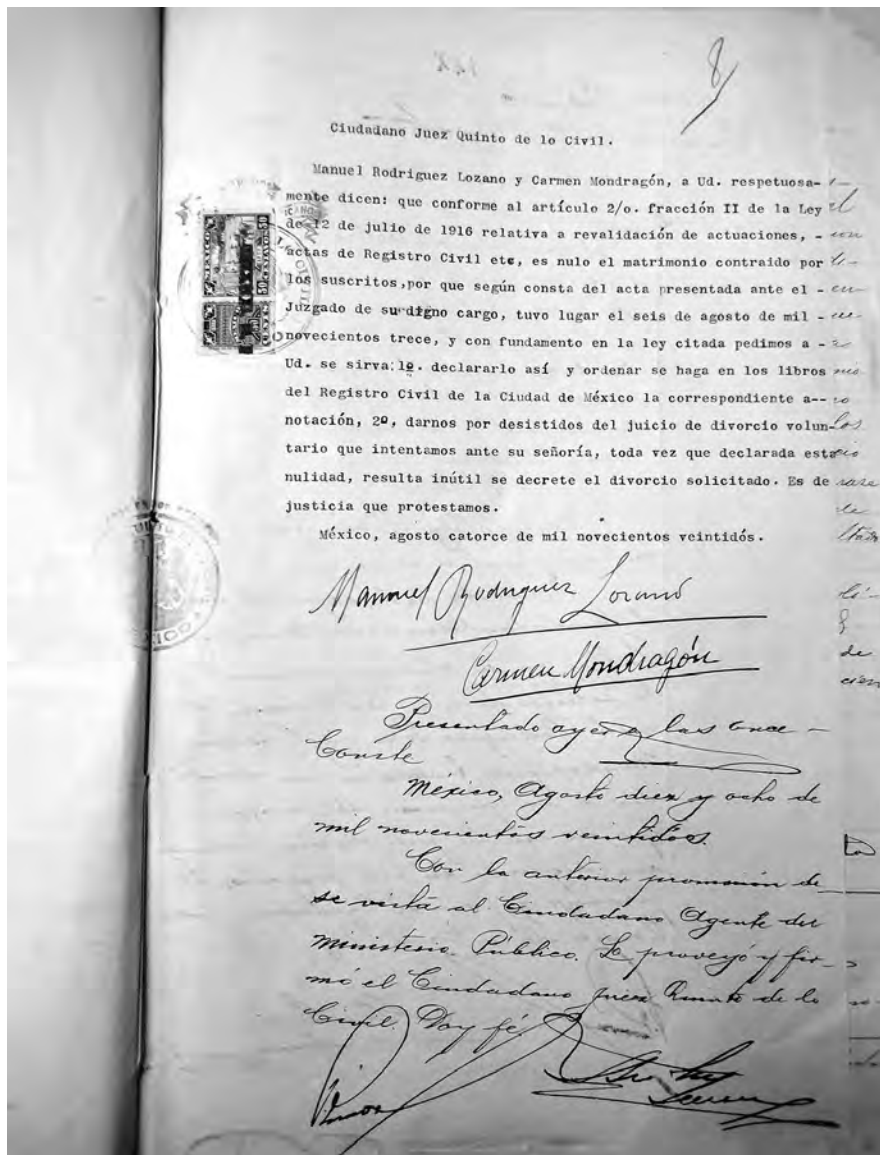 8
Ciudadano Juez Quinto de lo Civil.
Manuel Rodriguez Lozano y Carmen Mondragón, a Ud. respetuosa-
mente dicen: que conforme al artículo 2/o. fracción II de la Ley
de 12 de julio de 1916 relativa a revalidación de actuaciones, -
actas de Registro Civil etc, es nulo el matrimonio contraido por
los suscritos,por que según consta del acta presentada ante el -
Juzgado de su digno cargo, tuvo lugar el seis de agosto de mil -
novecientos trece, y con fundamento en la ley citada pedimos a -
Ud. se sirva:1º. declararlo así y ordenar se haga en los libros
del Registro Civil de la Ciudad de México la correspondiente a--
notación, 2º, darnos por desistidos del juicio de divorcio volun-
tario que intentamos ante su señoría, toda vez que declarada esta
nulidad, resulta inútil se decrete el divorcio solicitado. Es de
justicia que protestamos.
México, agosto catorce de mil novecientos veintidós.
Manuel Rodriguez Lozano
Carmen Mondragón
Presentado ayer a las once -
Conste
México, Agosto diez y ocho de
mil novecientos veintidos.
Con la anterior promoción de
se vista al Ciudadano Agente del
Ministerio Público. Lo proveyó y fir-
mó el Ciudadano Juez Quinto de lo
Civil. Doy fé.